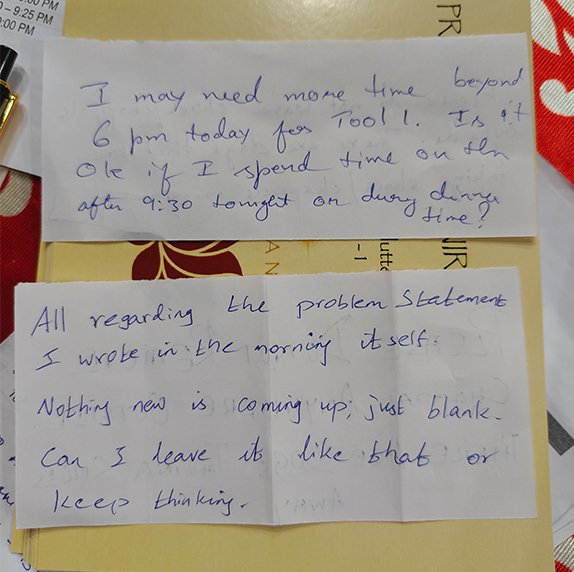 0 – 9:25 PM
:00 PM
PR
I may need more time beyond
6 pm today for Tool 1. Is it
Ok if I spend time on
after 9:30 tonight or during dinner
time?
AN
NIR
- 1
All regarding the problem Statement
I wrote in the morning itself.
Nothing new is coming up; just blank.
Can I leave it like that or
keep thinking.